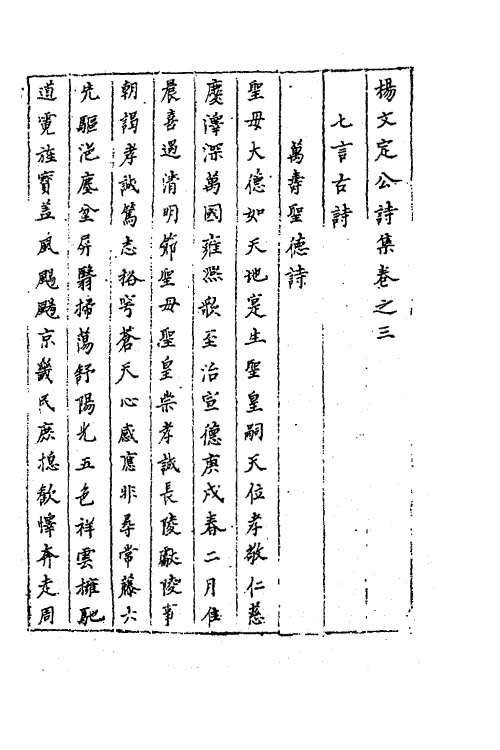 楊文定公詩集卷之三
七言古詩
萬壽聖德詩
聖母大德如天地寔生聖皇嗣天位孝敬仁慈
慶澤深萬國雍熙歌至治宣德庚戌春二月佳
晨喜遇清明節聖母聖皇崇孝誠長陵獻陵事
朝謁孝誠篤志格穹蒼天心感應非尋常藤六
先驅浥塵坌屏翳掃蕩舒陽光五色祥雲擁馳
道霓旌寶盖風颺颺京畿民庶摠歡懌奔走周